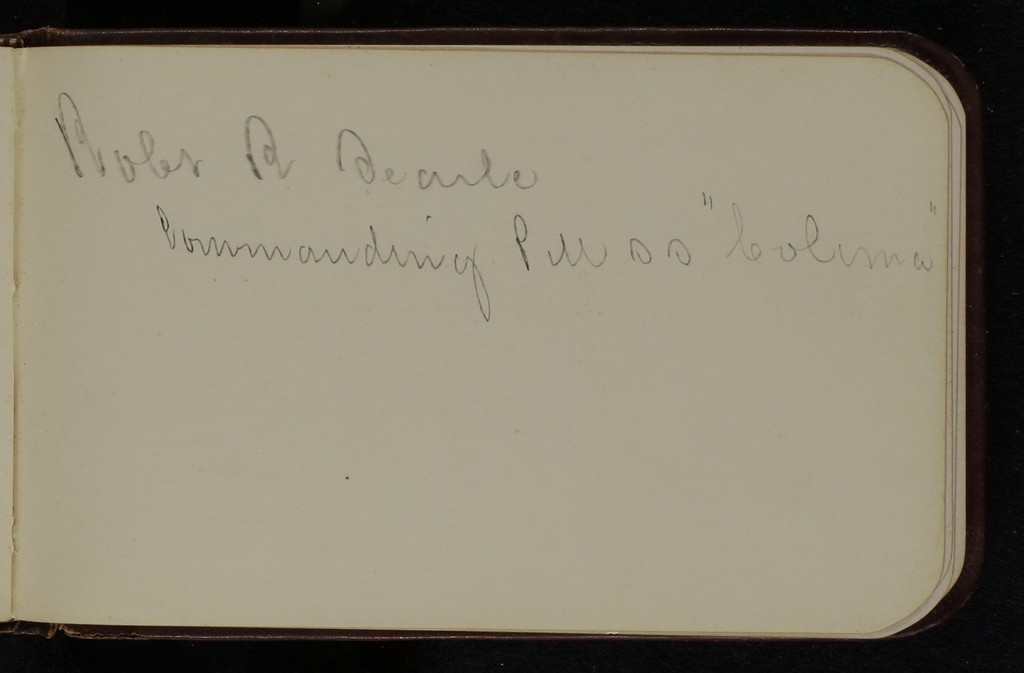 Robt R Searle
Commanding P M S S "Colima"